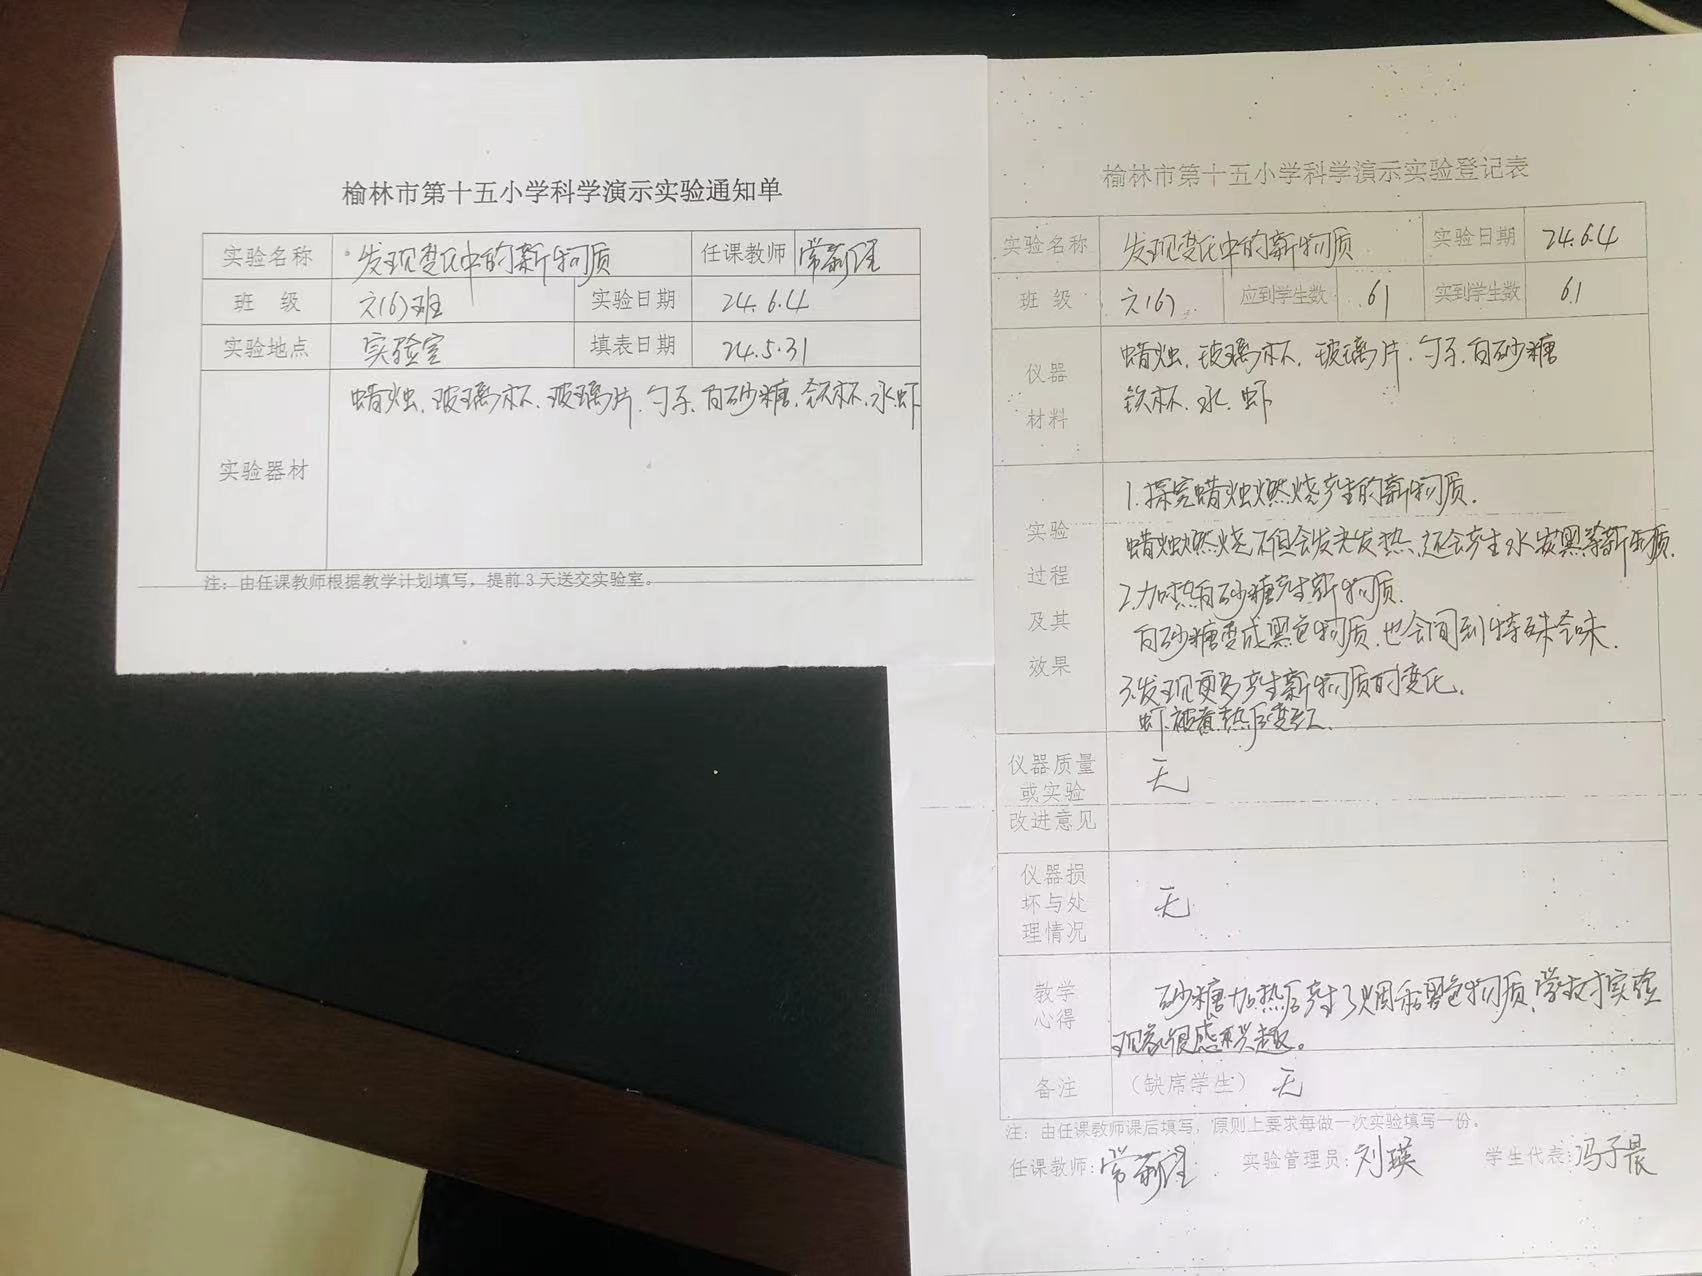 榆林市第十五小学科学演示实验通知单
实验名称 发现变化中的新物质 任课教师
班 级 六(6)班 实验日期 24.6.4
实验地点 实验室 填表日期 24.5.31
实验器材 蜡烛、玻璃杯、玻璃片、勺子、白砂糖、铁杯、水、虾
注：由任课教师根据教学计划填写，提前3天送交实验室。
榆林市第十五小学科学演示实验登记表
实验名称 发现变化中的新物质 实验日期 24.6.4
班 级 六(6) 应到学生数 61 实到学生数 61
仪器材料 蜡烛、玻璃杯、玻璃片、勺子、白砂糖
铁杯、水、虾
实验过程及其效果
1.探究蜡烛燃烧产生的新物质.
蜡烛燃烧不但会发光发热,还会产生水、炭黑等新物质.
2.加热白砂糖产生新物质.
白砂糖变成黑色物质,也会闻到特殊气味.
3.发现更多产生新物质的变化.
虾被煮热后变红.
仪器质量或实验改进意见 无
仪器损坏与处理情况 无
教学心得 砂糖加热后产生了烟和黑色物质,学生对实验
现象很感兴趣。
备注 （缺席学生） 无
注：由任课教师课后填写，原则上要求每做一次实验填写一份。
任课教师: 实验管理员:刘瑛 学生代表:冯子晨